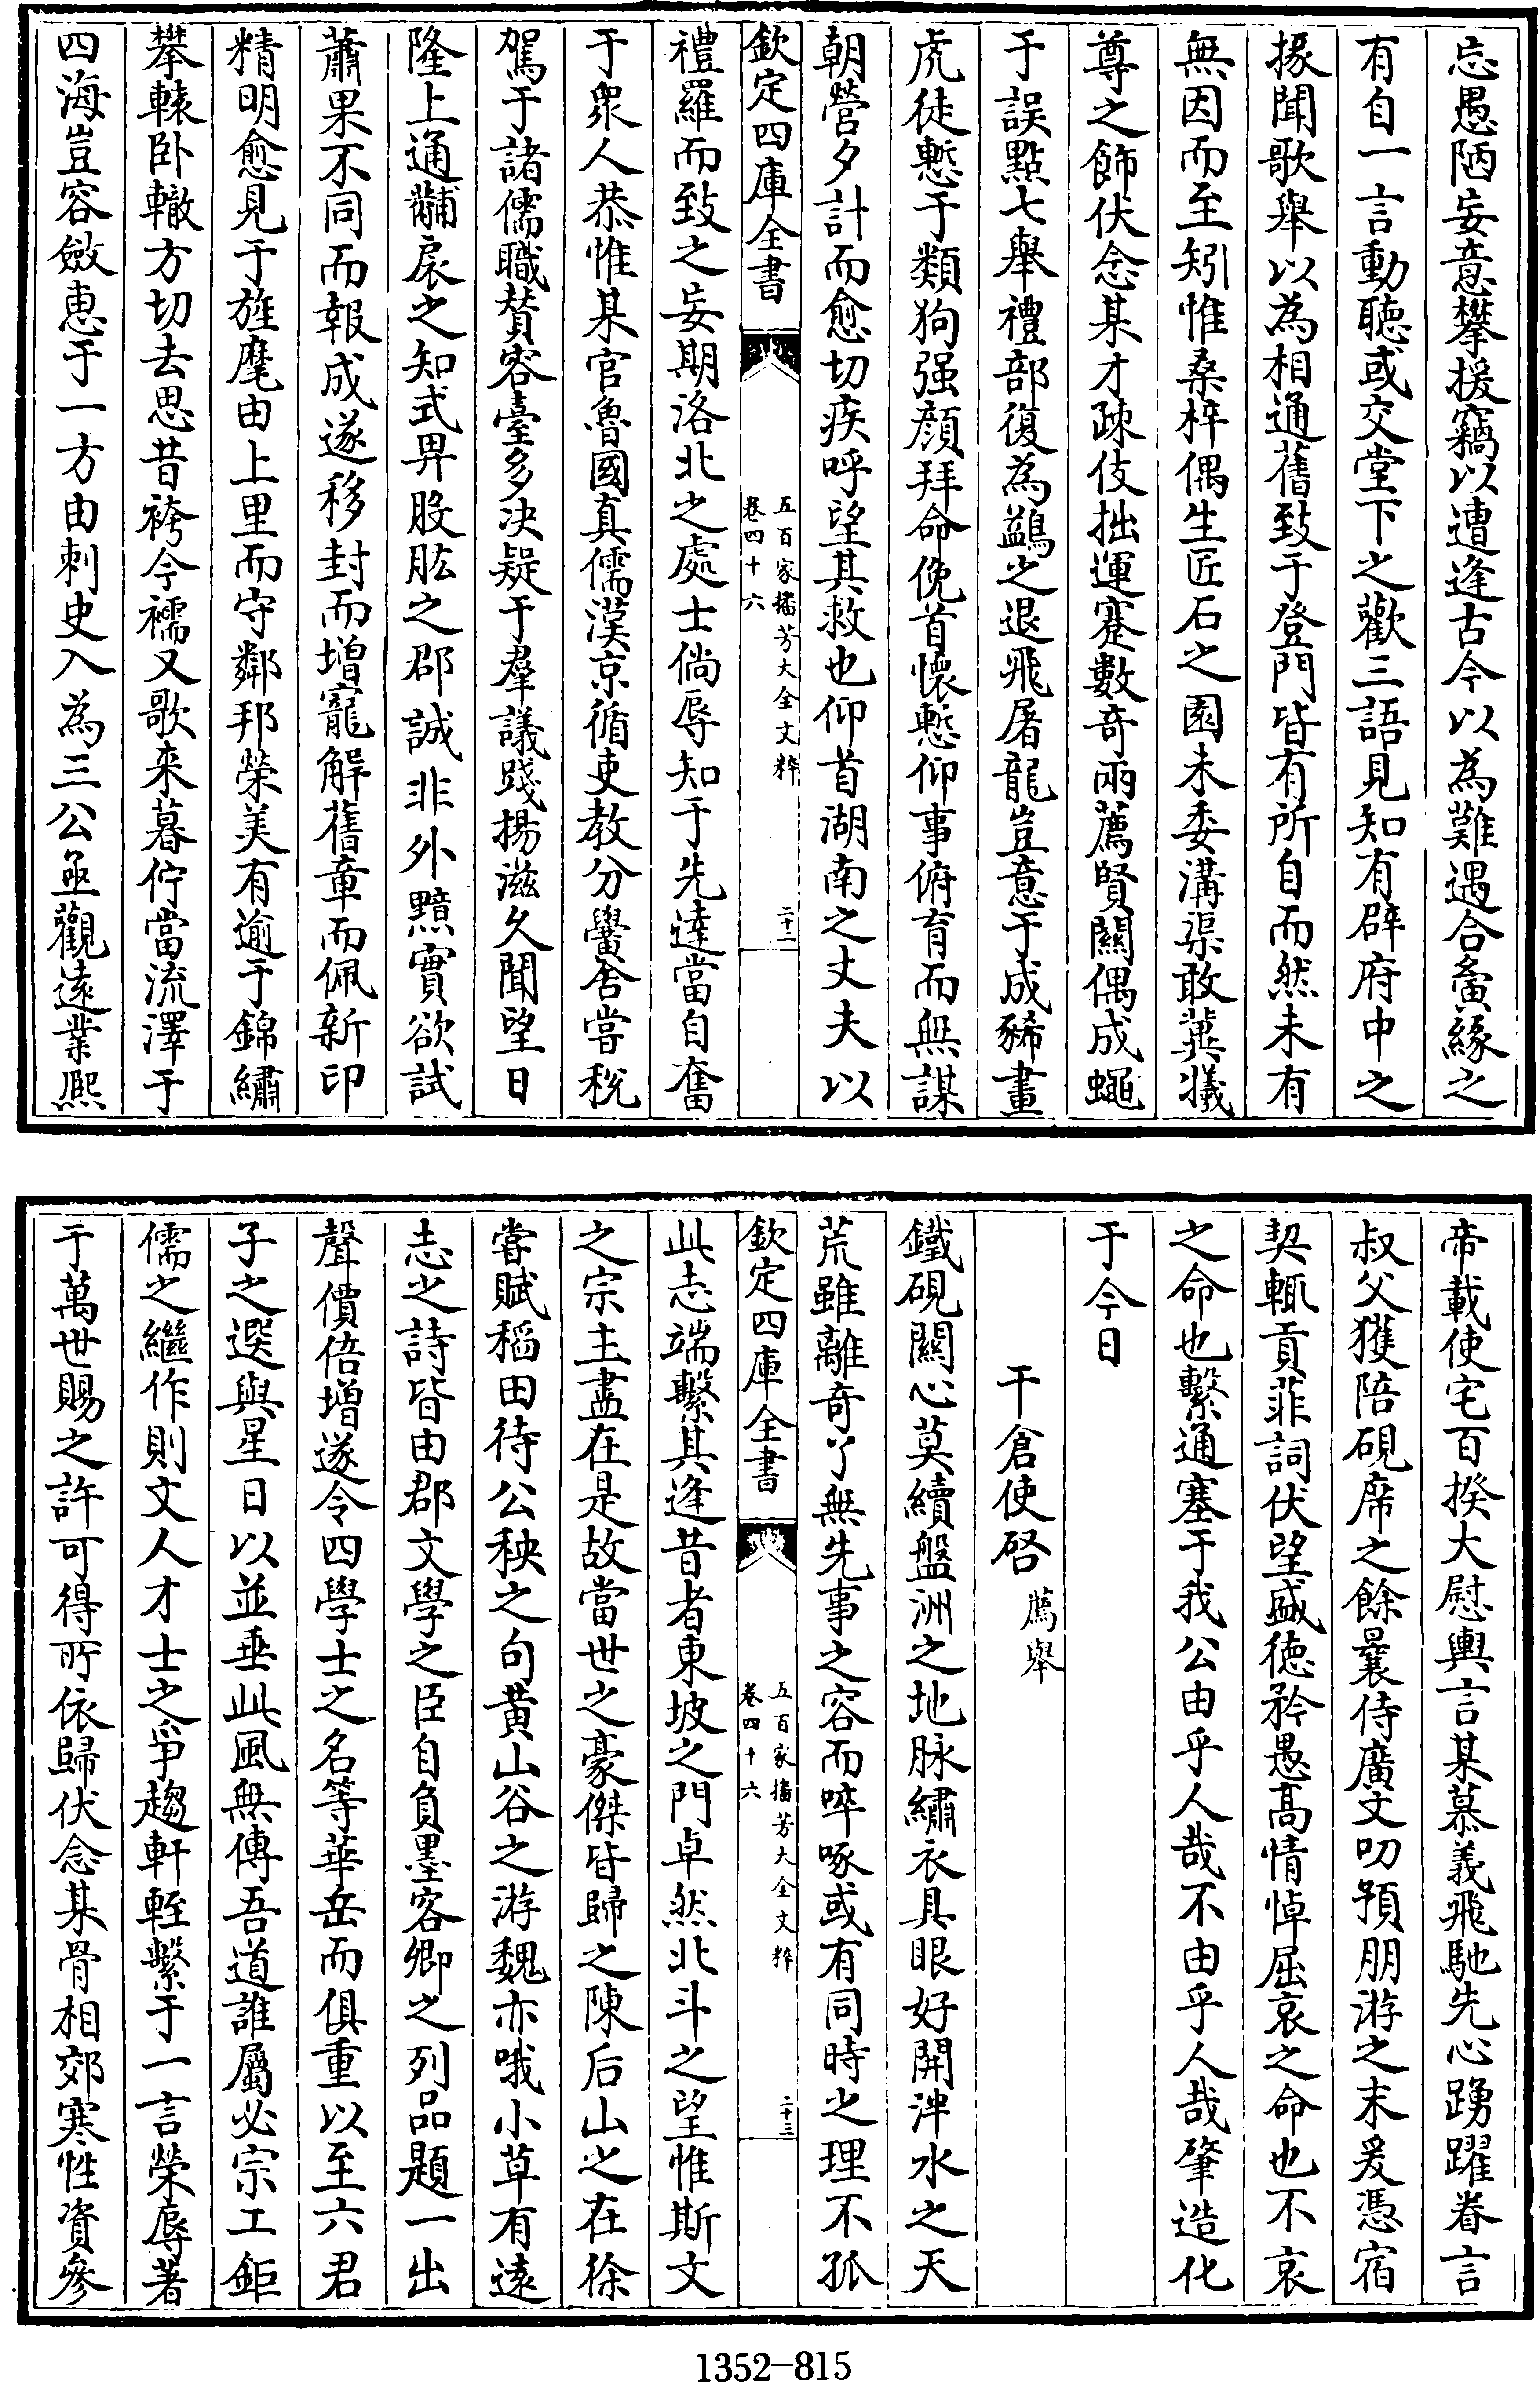 忘愚陋妄意攀援竊以遭逢古今以為難遇合夤緣之
有自一言動聽或交堂下之歡三語見知有辟府中之
掾聞歌舉以為相通舊致于登門皆有所自而然未有
無因而至矧惟桑梓偶生匠石之園未委溝渠敢冀犧
尊之飾伏念某才疎伎拙運蹇數奇兩薦賢關偶成蠅
于誤點七舉禮部復為鷁之退飛屠龍豈意于成豨畫
虎徒慙于類狗强顔拜命俛首懷慙仰事俯育而無謀
朝營夕計而愈切疾呼望其救也仰首湖南之丈夫以
欽定四庫全書
五百家播芳大全文粹
卷四十六
二十二
禮羅而致之妄期洛北之處士倘辱知于先達當自奮
于衆人恭惟某官魯國真儒漢京循吏教分黌舍嘗稅
駕于諸儒職賛容臺多决疑于羣議踐揚滋久聞望日
隆上通黼扆之知式畀股肱之郡誠非外黙實欲試
蕭果不同而報成遂移封而增寵解舊章而佩新印
精明愈見于旌麾由上里而守鄰邦榮美有逾于錦繡
攀轅卧轍方切去思昔袴今襦又歌来暮佇當流澤于
四海豈容斂惠于一方由刺史入為三公亟觀逺業熈
帝載使宅百揆大慰輿言某慕義飛馳先心踴躍眷言
叔父獲陪硯席之餘曩侍廣文叨預朋游之末爰憑宿
契輒貢菲詞伏望盛徳矜愚髙情悼屈哀之命也不哀
之命也繫通塞于我公由乎人哉不由乎人哉肇造化
于今日
干倉使啓 薦舉
鐵硯關心莫續盤洲之地脉繡衣具眼好開泮水之天
荒雖離奇了無先事之容而啐啄或有同時之理不孤
欽定四庫全書
五百家播芳大全文粹
卷四十六
二十三
此志端繫其逢昔者東坡之門卓然北斗之望惟斯文
之宗主盡在是故當世之豪傑皆歸之陳后山之在徐
嘗賦稻田待公秧之句黄山谷之游魏亦哦小草有逺
志之詩皆由郡文學之臣自負墨客卿之列品題一出
聲價倍增遂令四學士之名等華岳而俱重以至六君
子之選與星日以並垂此風無傳吾道誰屬必宗工鉅
儒之繼作則文人才士之爭趨軒輊繫于一言榮辱著
于萬世賜之許可得所依歸伏念某骨相郊寒性資參
1352-815